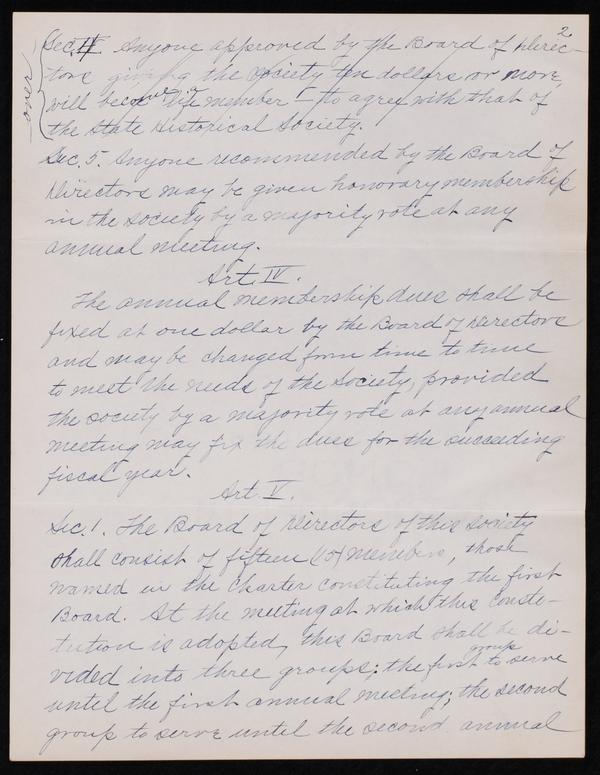 2
Sec. IV. Anyone approved by the Board of Direc-
tors giving the society ten dollars or more,
will become life member - to agree with that of
the State Historical Society.
over
Sec. 5. Anyone recommended by the Board of
Directors may be given honorary membership
in the society by a majority vote at any
annual meeting.
Art. IV.
The annual membership dues shall be
fixed at one dollar by the Board of Directors
and may be changed from time to time
to meet the needs of the Society, provided
the society by a majority vote at any annual
meeting may fix the dues for the succeeding
fiscal year.
Art V.
Sec. 1. The Board of Directors of this Society
shall consist of fifteen (15) members, those
named in the Charter constituting the first
Board. At the meeting at which this consti-
tution is adopted, this Board shall be di-
vided into three groups; the first group to serve
until the first annual meeting; the second
group to serve until the second annual